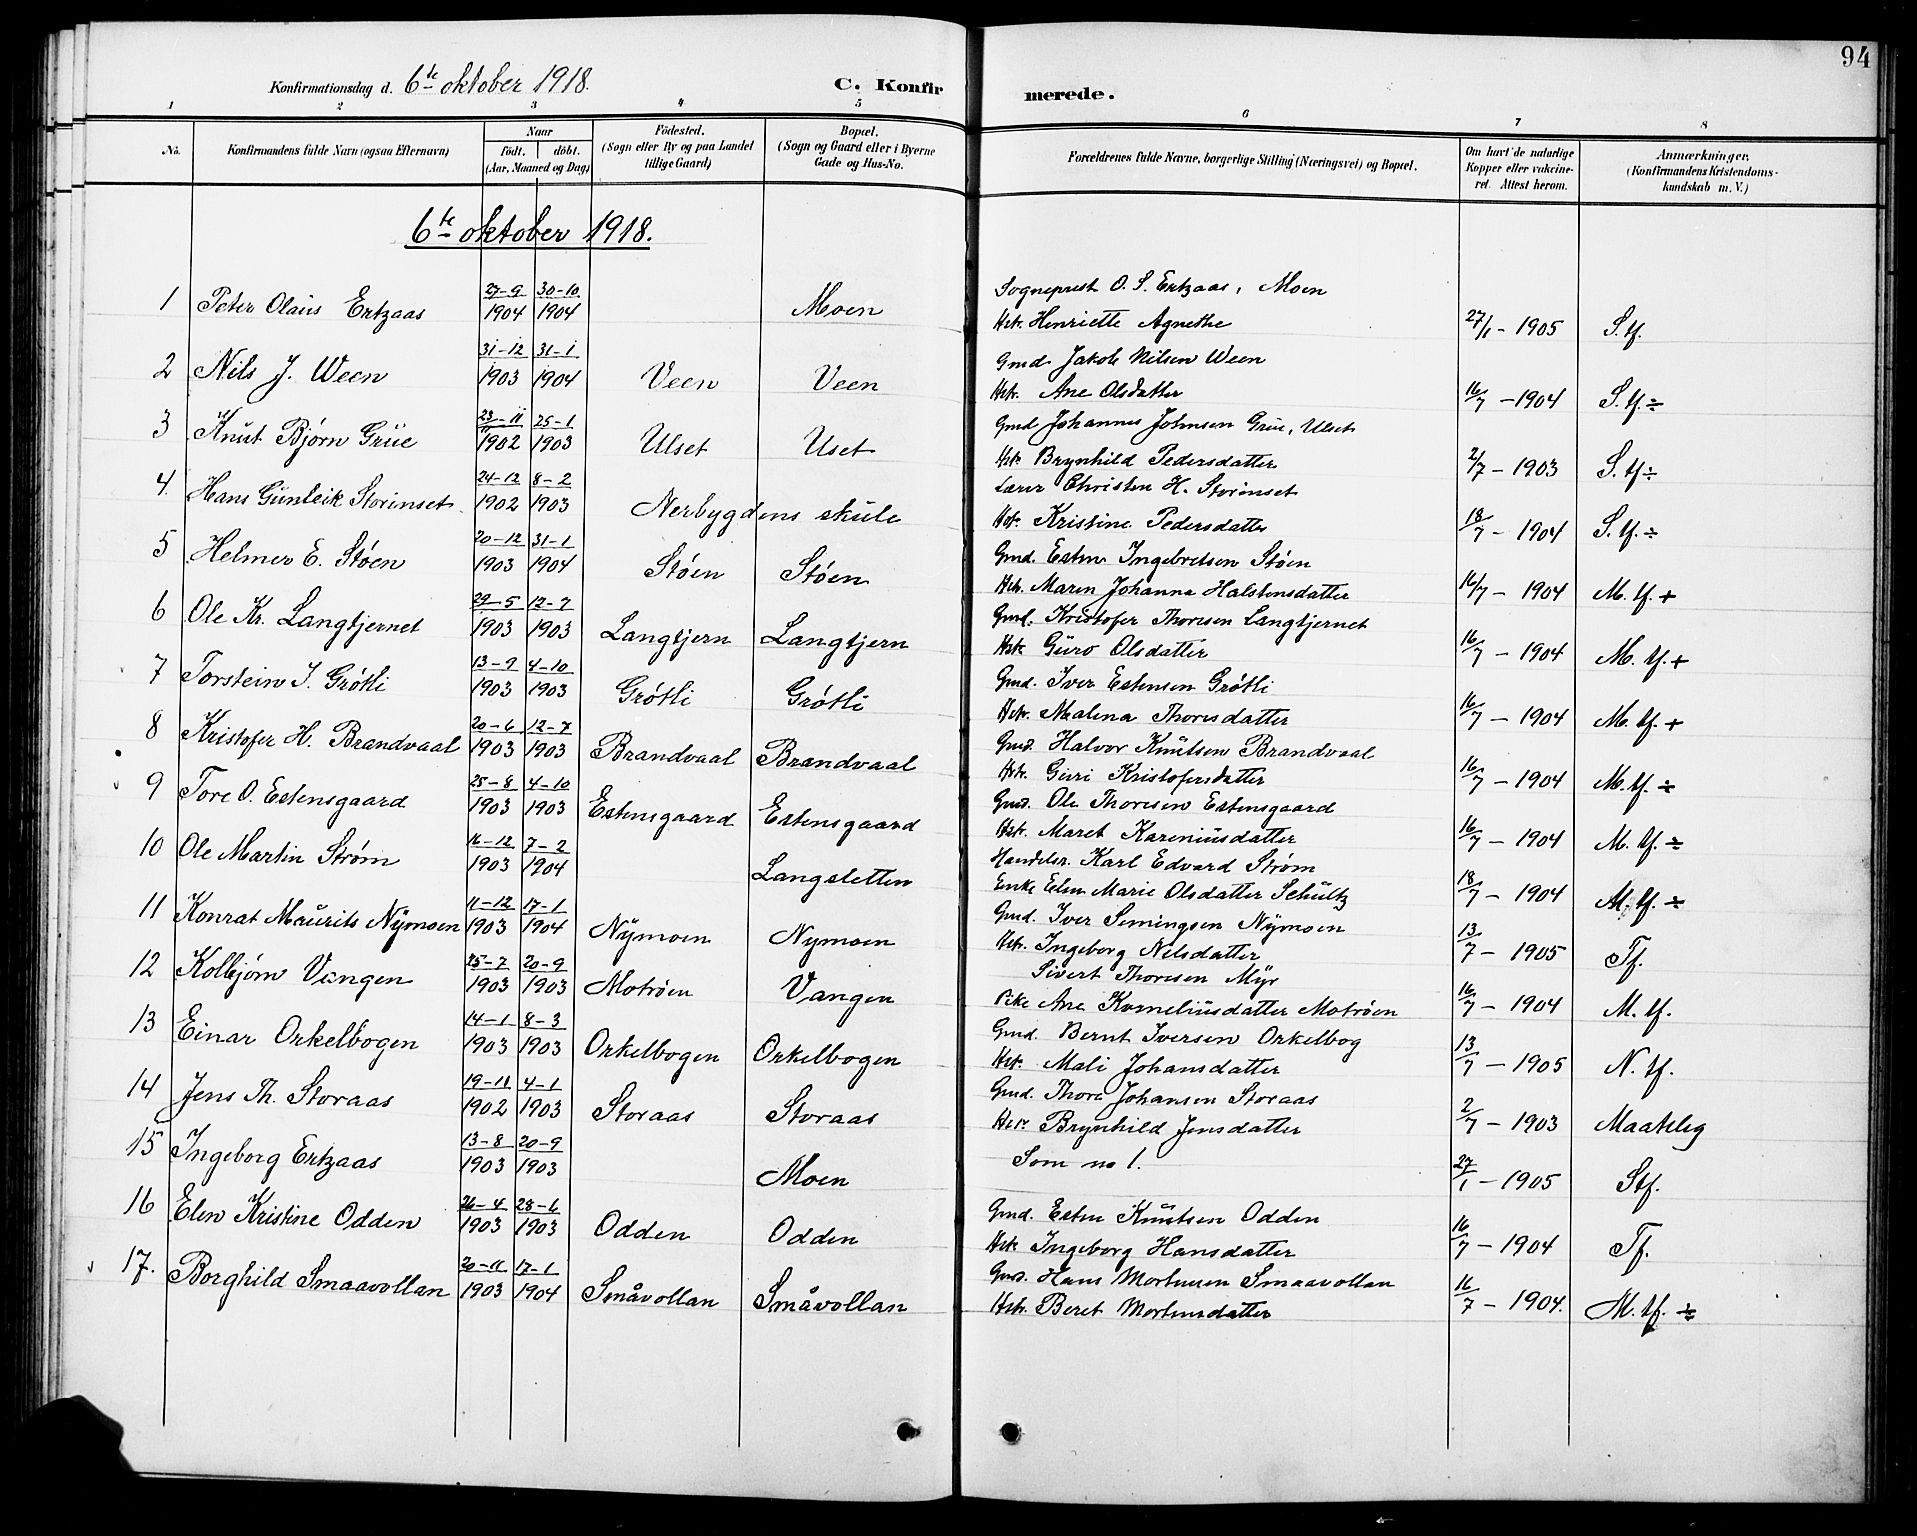 94
Konfirmationsdag d. 6te oktober 1918.
C. Konfirmerede.
1 2 3 4 5 6 7 8
No.
Konfirmandens fulde Navn (ogsaa Efternavn)
Naar
födt. döbt.
(Aar, Maaned og Dag)
Födested.
(Sogn eller By og paa Landet
tillige Gaard)
Bopæl.
(Sogn og Gaard eller i Byerne
Gade og Hus-No.
Forældrenes fulde Navne, borgerlige Stilling (Næringsvei) og Bopæl.
Om havt de naturlige
Kopper eller vakcine-
ret. Attest herom.
Anmærkninger,
(Konfirmandens Kristendoms-
kundskab m. V.)
6te oktober 1918.
1 Peter Olaus Ertzaas 27-9 1904 30-10 1904 Moen Sogneprest O. S. Ertzaas, Moen
Hst. Henriette Agnethe 27/1 - 1905 S. tf.
2 Nils J. Ween 31-12 1903 31-1 1904 Veen Veen Gmd. Jakob Nilsen Ween
Hst. Ane Olsdatter 16/7 - 1904 S. tf. ÷
3 Knut Bjørn Grue 23-11 1902 25-1 1903 Ulset Uset Gmd Johannes Johnsen Grue, Ulset
Hst. Brynhild Pedersdatter 2/7 - 1903 S. tf ÷
4. Hans Gunleik Storinset 24-12 1902 8-2 1903 Nerbygdens skule Lærer Christen H. Storinset
Hst. Kristine Pedersdatter 18/7 - 1904 S. tf. ÷
5 Helmer E. Støen 20-12 1903 31-1 1904 Støen Støen Gmd. Esten Ingebretsen Støen
Hst. Maren Johanna Halstensdatter 16/7 - 1904 M. tf. +
6 Ole Kr. Langtjernet 29-5 1903 12-7 1903 Langtjern Langtjern Gmd. Kristofer Thoresen Langtjernet
Hst Guro Olsdatter 16/7 - 1904 M. tf. +
7 Torstein I. Grøtli 13-9 1903 4-10 1903 Grøtli Grøtli Gmd. Iver Estensen Grøtli
Hst. Malena Thoresdatter 16/7 - 1904 M. tf. +
8 Kristofer H. Brandvaal 20-6 1903 12-7 1903 Brandvaal Brandvaal Gmd. Halvor Knutsen Brandvaal
Hst. Guri Kristofersdatter 16/7 - 1904 M. tf. ÷
9 Tore O. Estensgaard 25-8 1903 4-10 1903 Estensgaard Estensgaard Gmd. Ole Thoresen Estensgaard
Hst. Maret Kareniusdatter 16/7 - 1904 M. tf. ÷
10 Ole Martin Strøm 16-12 1903 7-2 1904 Langsletten Handelsr. Karl Edvard Strøm
Enke Elen Marie Olsdatter Schultz 18/7 - 1904 M. tf. ÷
11 Konrat Maurits Nymoen 11-12 1903 17-1 1904 Nymoen Nymoen Gmd. Iver Semingsen Nymoen
Hst. Ingeborg Nilsdatter 13/7 - 1905 Tf.
12 Kolbjørn Vangen 25-7 1903 20-9 1903 Motrøen Vangen Sivert Thoresen Myr
Pike Ane Korneliusdatter Motrøen 16/7 - 1904 M. tf.
13 Einar Orkelbogen 14-1 1903 8-3 1903 Orkelbogen Orkelbogen Gmd. Bernt Iversen Orkelbog
Hst. Mali Johansdatter 13/7 - 1905 N. tf.
14 Jens Th. Storaas 19-11 1902 4-1 1903 Storaas Storaas Gmd. Thore Johansen Storaas
Hst. Brynhild Jensdatter 2/7 - 1903 Maatelig
15 Ingeborg Ertzaas 13-8 1903 20-9 1903 Moen Som no 1. 27/1 - 1905 Stf.
16 Elen Kristine Odden 26-4 1903 28-6 1903 Odden Odden Gmd. Esten Knutsen Odden
Hst. Ingeborg Hansdatter 16/7 - 1904 Tf.
17. Borghild Smaavollan 20-11 1903 17-1 1904 Småvollan Småvollan Gmd. Hans Mortensen Smaavollan
Hst. Beret Mortensdatter 16/7 - 1904. M. tf. ÷